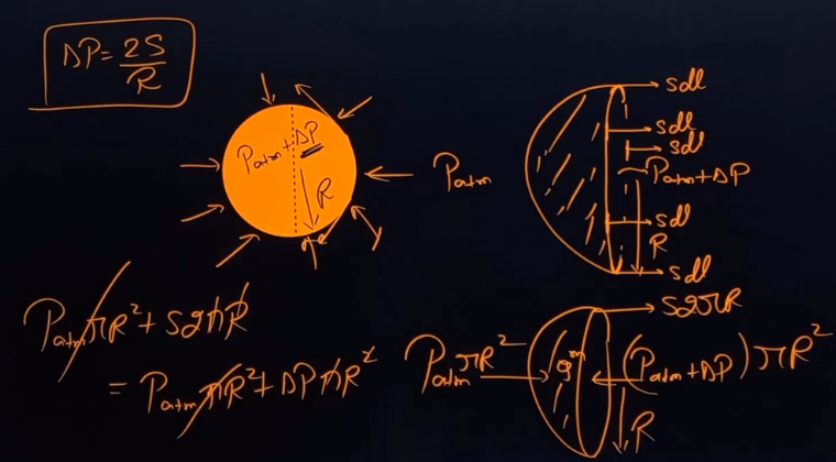 ΔP = 2S/R
Patm + ΔP
R
Patm
Sdl
Sdl
Sdl
Patm + ΔP
Sdl
R
Sdl
PatmπR² + S2πR
= PatmπR² + ΔPπR²
PatmπR²
S2πR
(Patm + ΔP)πR²
R